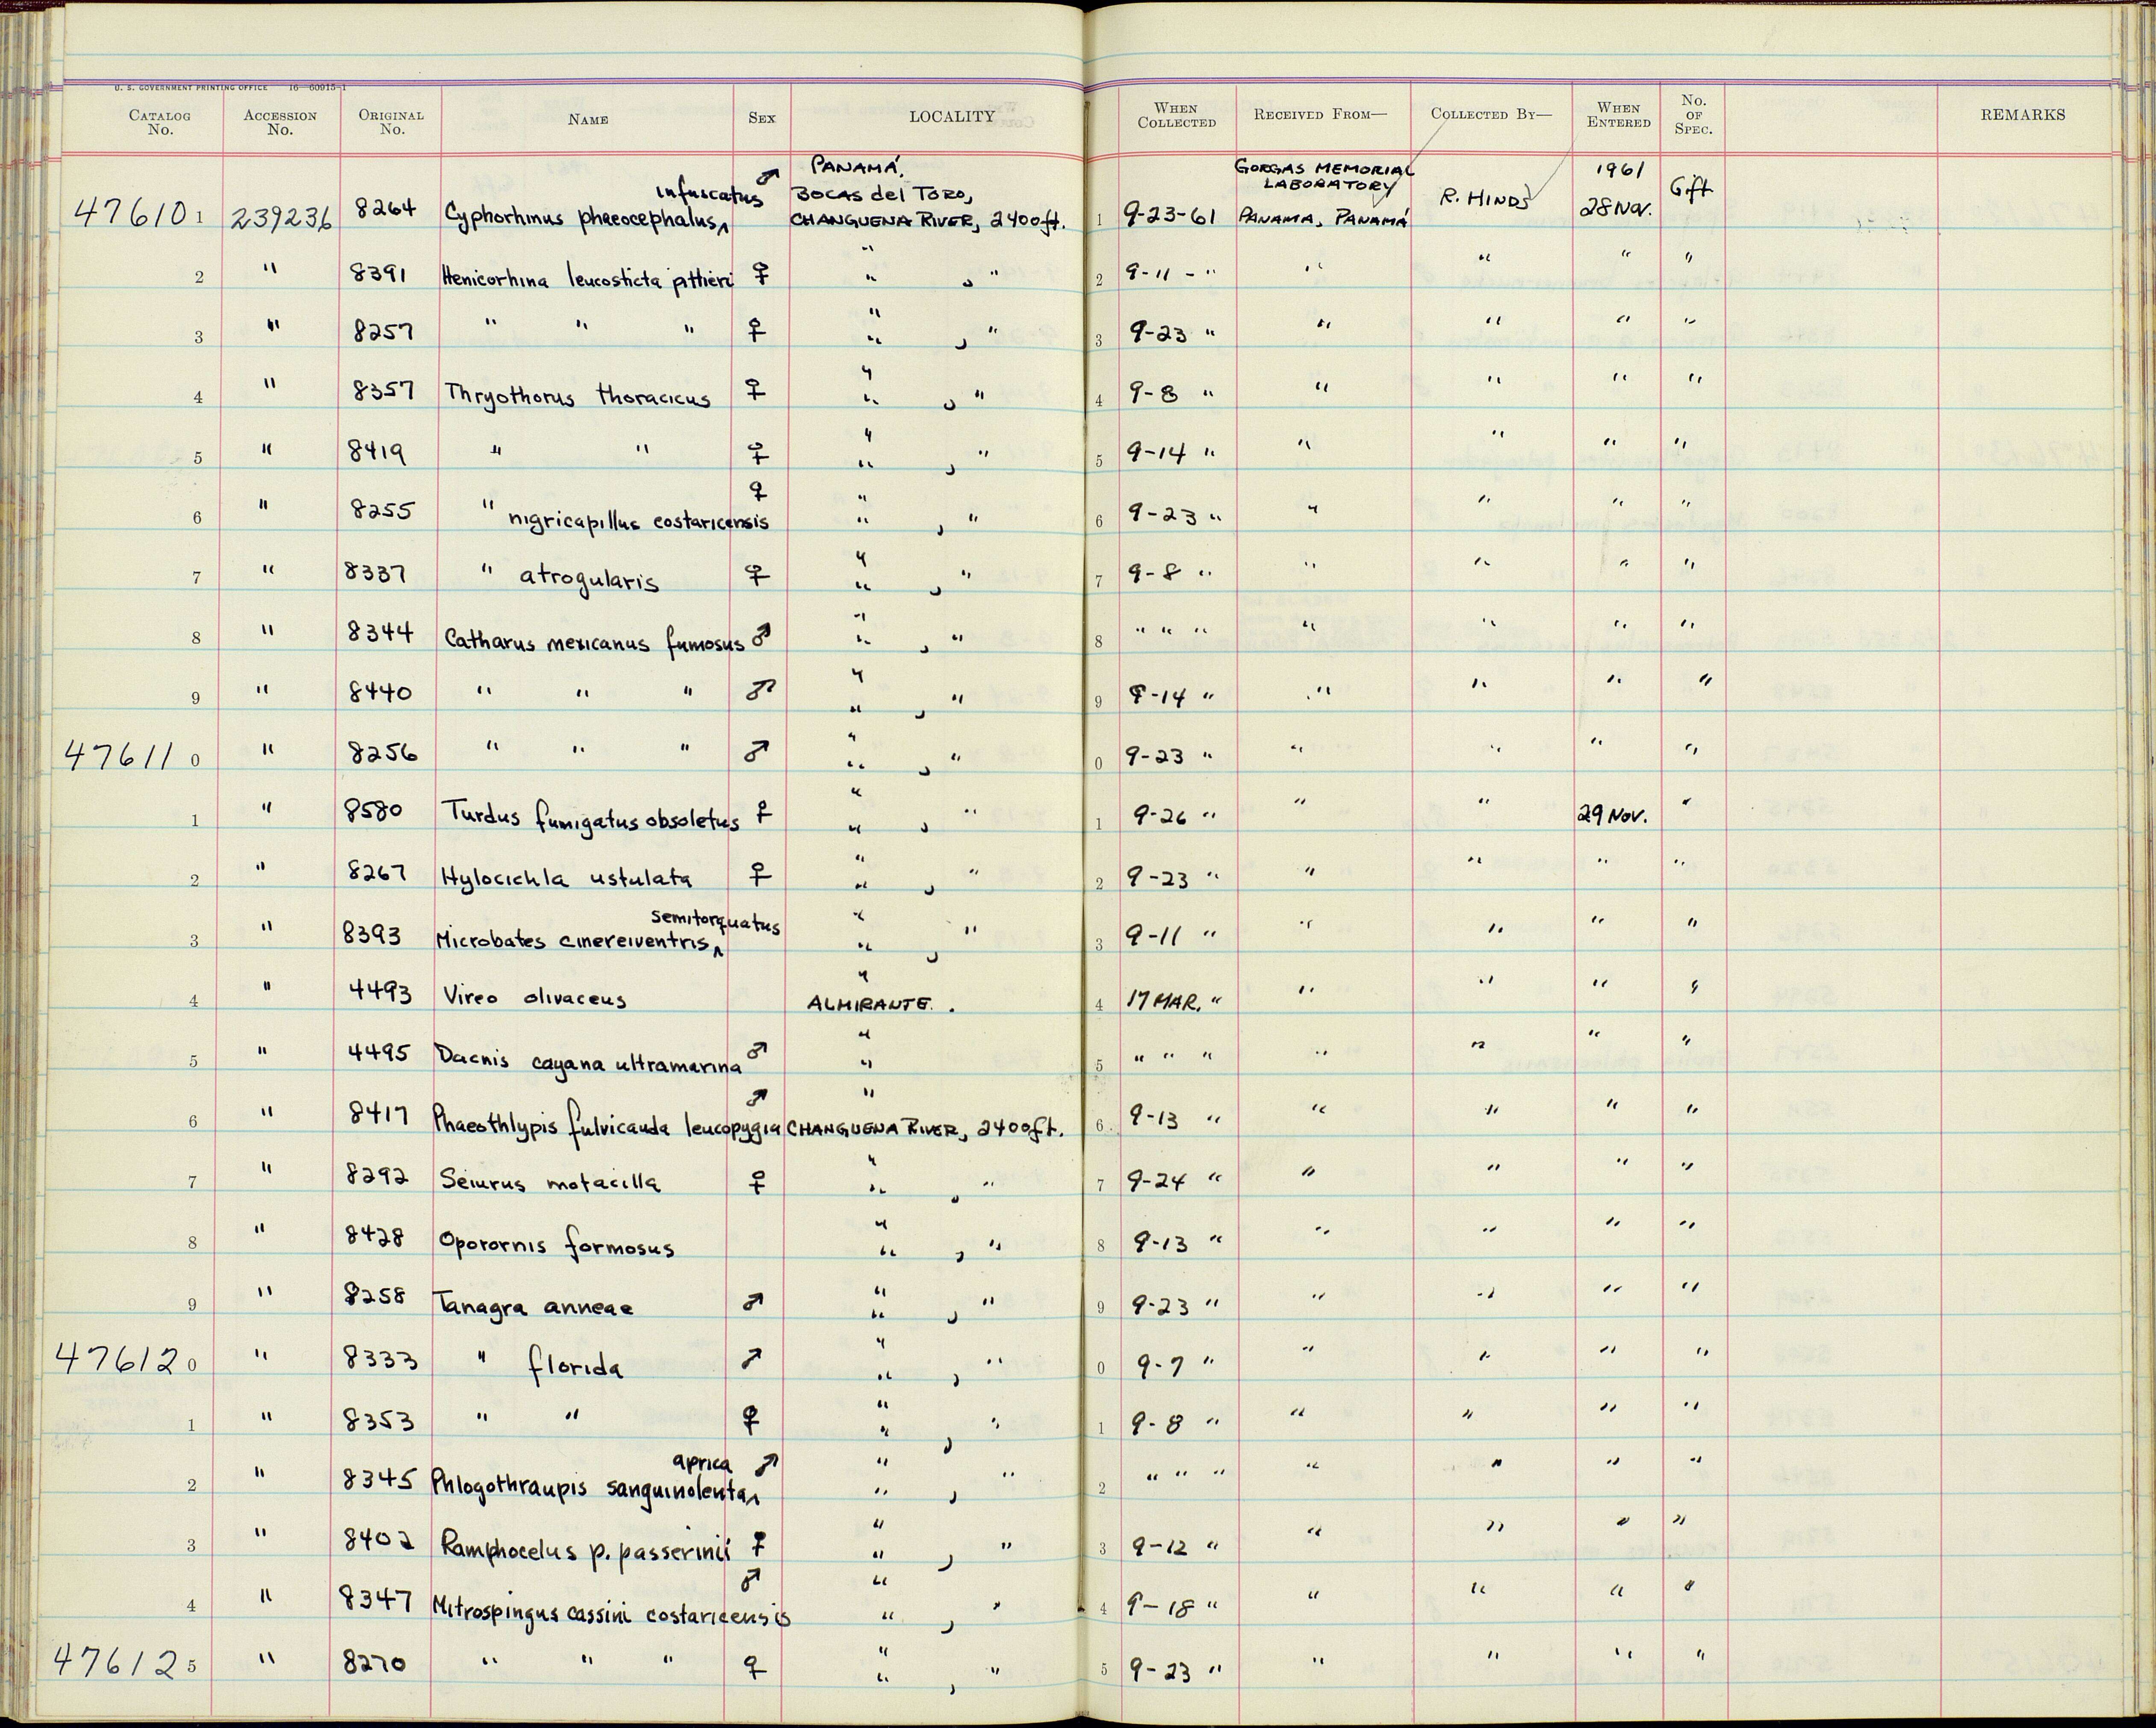 U. S. GOVERNMENT PRINTING OFFICE 16—60915-1
CATALOG No. ACCESSION No. ORIGINAL No. NAME SEX LOCALITY WHEN COLLECTED RECEIVED FROM— COLLECTED BY— WHEN ENTERED No. OF SPEC. REMARKS
47610 1 239236 8264 Cyphorhinus phaeocephalus ‸ infuscatus ♂ PANAMÁ, BOCAS del TORO, CHANGUENA RIVER, 2400 ft. 1 9-23-61 GORGAS MEMORIAL LABORATORY PANAMA, PANAMÁ R. HINDS 1961 28 Nov. Gift
2 " 8391 Henicorhina leucosticta pittieri ♀ " " , " 2 9-11-" " " " "
3 " 8257 " " " ♀ " " , " 3 9-23 " " " " "
4 " 8357 Thryothorus thoracicus ♀ " " , " 4 9-8 " " " " "
5 " 8419 " " ♀ " " , " 5 9-14 " " " " "
6 " 8255 " nigricapillus costaricensis ♀ " " , " 6 9-23 " " " " "
7 " 8337 " atrogularis ♀ " " , " 7 9-8 " " " " "
8 " 8344 Catharus mexicanus fumosus ♂ " " , " 8 " " " " " " "
9 " 8440 " " " ♂ " " , " 9 9-14 " " " " "
47611 0 " 8256 " " " ♂ " " , " 0 9-23 " " " " "
1 " 8580 Turdus fumigatus obsoletus ♀ " " , " 1 9-26 " " " 29 Nov. "
2 " 8267 Hylocichla ustulata ♀ " " , " 2 9-23 " " " " "
3 " 8393 Microbates cinereiventris ‸ semitorquatus " " , " 3 9-11 " " " " "
4 " 4493 Vireo olivaceus " ALMIRANTE. 4 17 MAR. " " " " "
5 " 4495 Dacnis cayana ultramarina ♂ " " 5 " " " " " " "
6 " 8417 Phaeothlypis fulvicauda leucopygia ♂ " CHANGUENA RIVER, 2400 ft. 6 9-13 " " " " "
7 " 8292 Seiurus motacilla ♀ " " , " 7 9-24 " " " " "
8 " 8428 Oporornis formosus " " , " 8 9-13 " " " " "
9 " 8258 Tanagra anneae ♂ " " , " 9 9-23 " " " " "
47612 0 " 8333 " florida ♂ " " , " 0 9-7 " " " " "
1 " 8353 " " ♀ " " , " 1 9-8 " " " " "
2 " 8345 Phlogothraupis sanguinolenta ‸ aprica ♂ " " , " 2 " " " " " " "
3 " 8402 Ramphocelus p. passerinii ♀ " " , " 3 9-12 " " " " "
4 " 8347 Mitrospingus cassini costaricensis ♂ " " , " 4 9-18 " " " " "
47612 5 " 8270 " " " ♀ " " , " 5 9-23 " " " " "